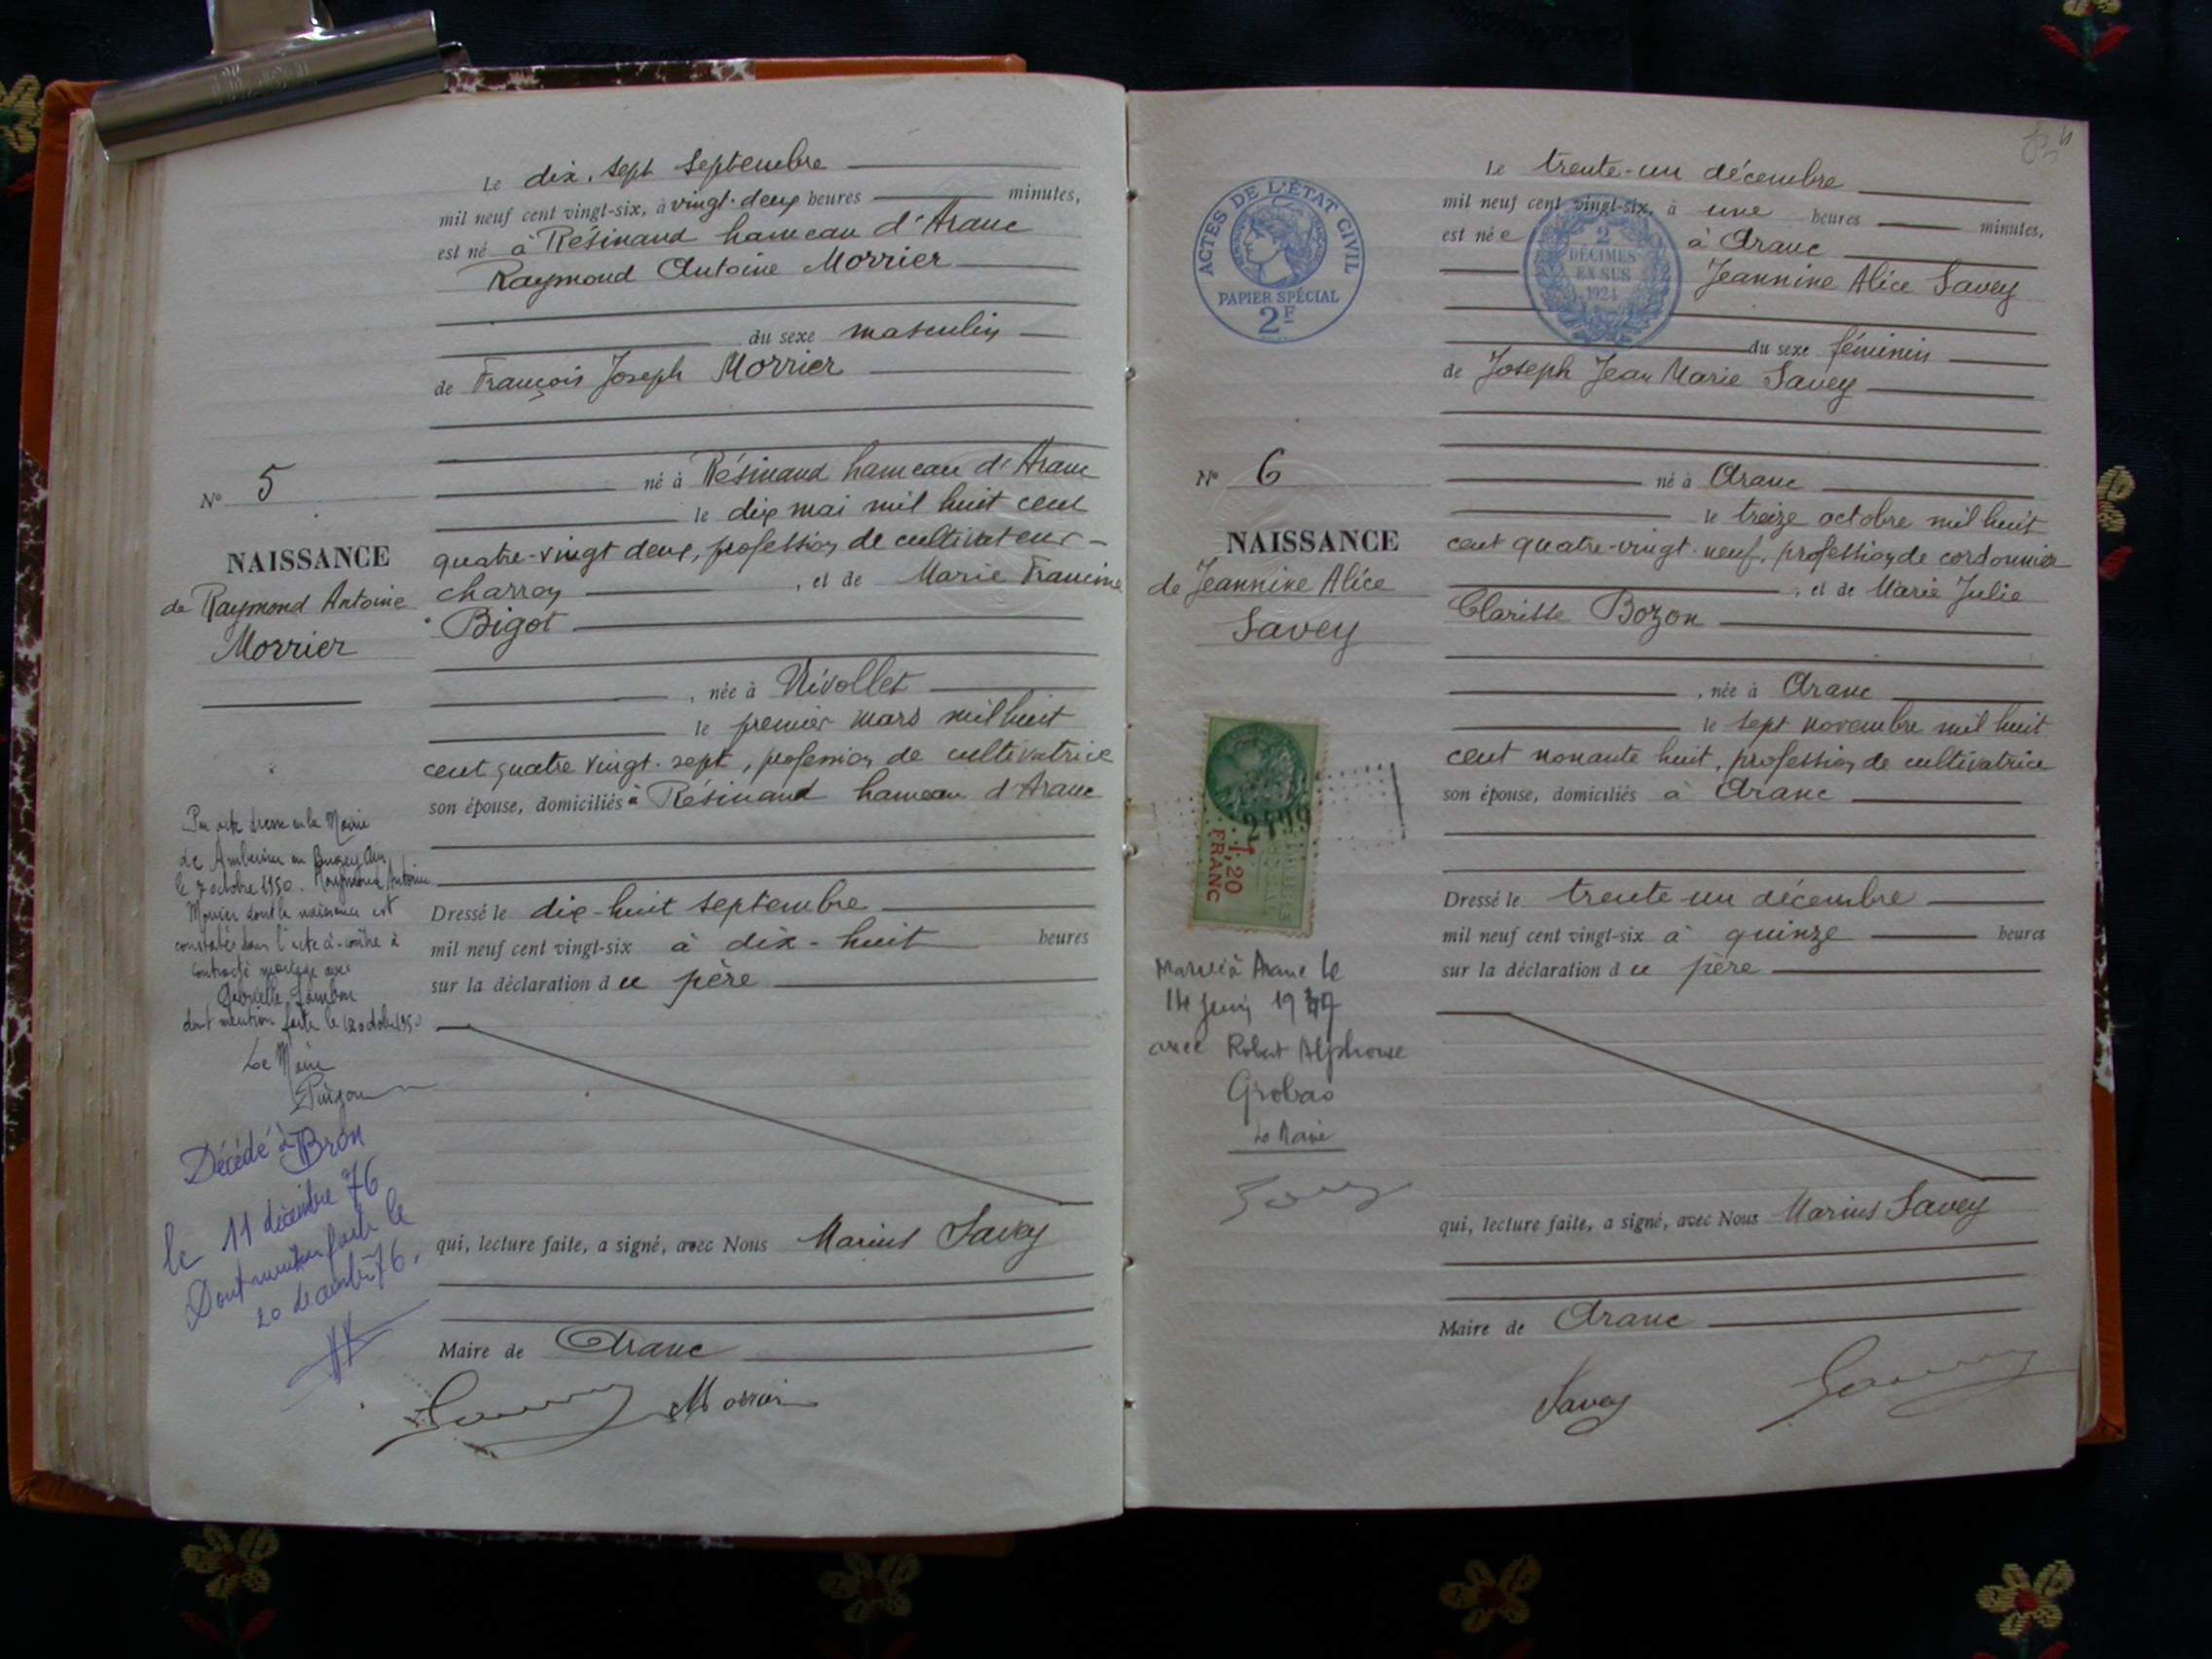 Le dix-sept septembre
mil neuf cent vingt-six, à vingt-deux heures minutes,
est né à Résinand hameau d'Aranc
Raymond Antoine Morrier
du sexe masculin
de François Joseph Morrier
né à Résinand hameau d'Aranc
le dix mai mil huit cent
quatre-vingt deux, profession de cultivateur-
charron, et de Marie Francine
Bigot
, née à Nivollet
le premier mars mil huit
cent quatre vingt-sept, profession de cultivatrice
son épouse, domiciliés à Résinand hameau d'Aranc
Dressé le dix-huit septembre
mil neuf cent vingt-six à dix-huit heures
sur la déclaration du père
qui, lecture faite, a signé, avec Nous Marius Savey
Maire de Aranc
Morrier
N° 5
NAISSANCE
de Raymond Antoine
Morrier
Par acte dressé en la Mairie
de Ambérieu en Bugey Ain
le 7 octobre 1950. Raymond Antoine
Morrier dont la naissance est
constatée dans l'acte ci-contre à
contracté mariage avec
Gabrielle
dont mention faite le 12 octobre 1950
Le Maire
Décédé à Bron
le 11 décembre 76
Dont mention faite le
20 décembre 76.
Le trente-un décembre
mil neuf cent vingt-six, à une heures minutes,
est née à Aranc
Jeannine Alice Savey
du sexe féminin
de Joseph Jean Marie Savey
né à Aranc
le treize octobre mil huit
cent quatre-vingt-neuf, profession de cordonnier
, et de Marie Julie
Clarisse Bozon
, née à Aranc
le sept novembre mil huit
cent nonante huit, profession de cultivatrice
son épouse, domiciliés à Aranc
Dressé le trente-un décembre
mil neuf cent vingt-six à quinze heures
sur la déclaration du père
qui, lecture faite, a signé, avec Nous Marius Savey
Maire de Aranc
Savey
ACTES DE L'ÉTAT CIVIL
PAPIER SPÉCIAL
2F
2
DÉCIMES
EN SUS
1924
N° 6
NAISSANCE
de Jeannine Alice
Savey
2499
1,20
FRANC
Mariée à Aranc le
14 juin 1947
avec Robert Alphonse
Grobas
Le Maire